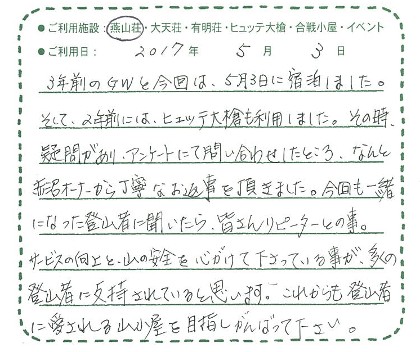 ●ご利用施設:燕山荘・大天荘・有明荘・ヒュッテ大槍・合戦小屋・イベント
●ご利用日: 2017 年 5 月 3 日
3年前のGWと今回は、5月3日に宿泊しました。
そして、2年前には、ヒュッテ大槍も利用しました。その時、
疑問があり、アンケートにて問い合わせしたところ、なんと
赤沼オーナーから丁寧なお返事を頂きました。今回も一緒
になった登山者に聞いたら、皆さんリピーターとの事。
サービスの向上と、山の安全を心がけて下さっている事が、多くの
登山者に支持されていると思います。これからも登山者
に愛される山小屋を目指しがんばって下さい。